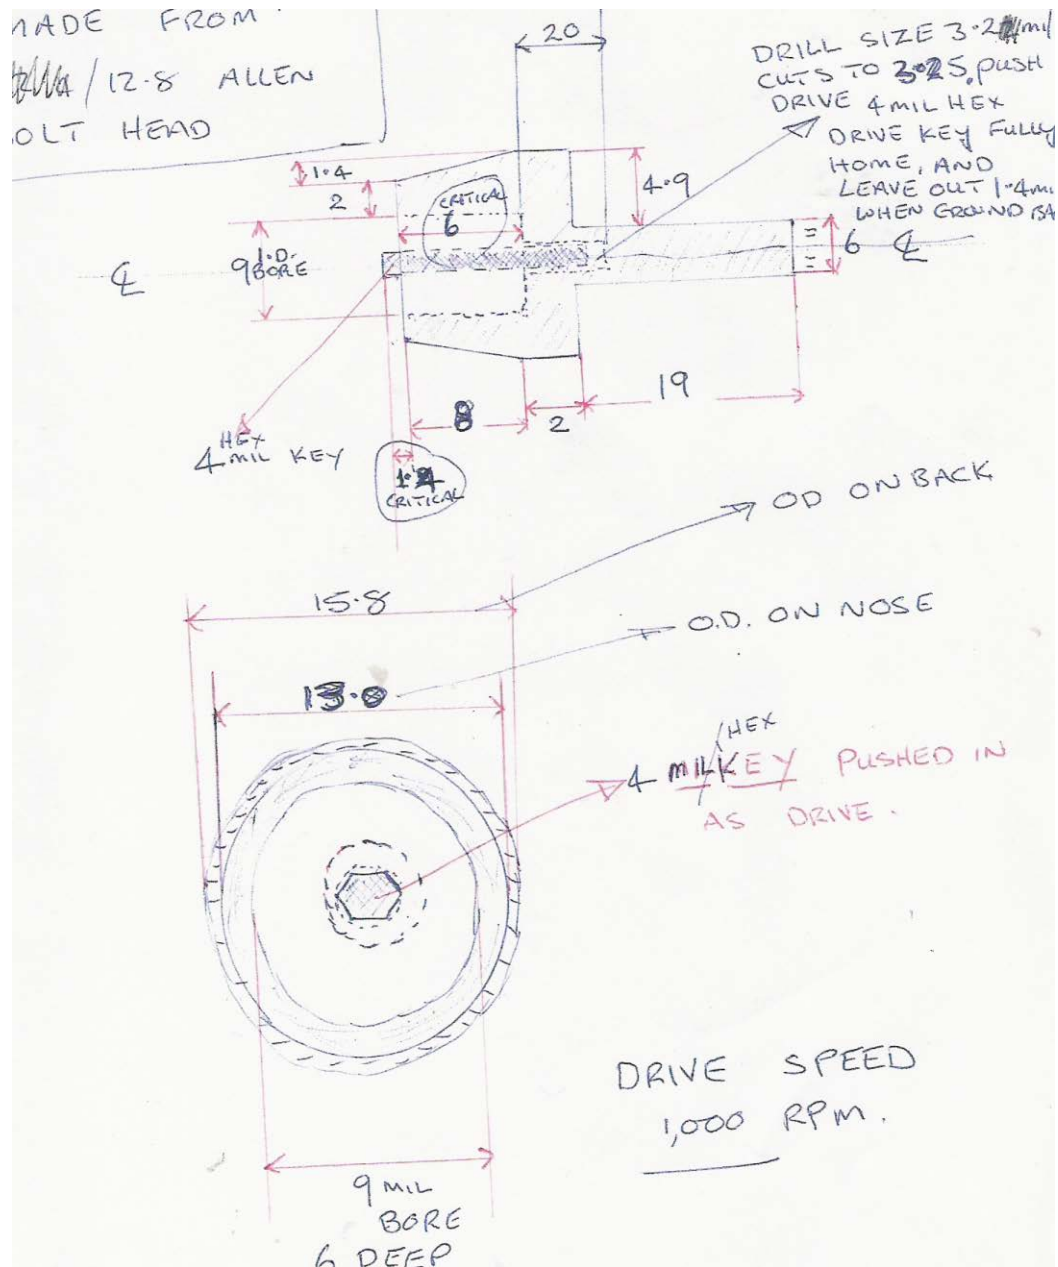 MADE FROM
/12.8 ALLEN
BOLT HEAD
20
DRILL SIZE 3.2 mil
CUTS TO 3.25, PUSH
DRIVE 4 MIL HEX
DRIVE KEY FULLY
HOME, AND
LEAVE OUT 1.4 mil
WHEN GROUND BA
1.4
2
CRITICAL
6
4.9
9 I.D.
BORE
CL
6
CL
8
2
19
HEX
4 MIL KEY
1.4
CRITICAL
OD ON BACK
15.8
O.D. ON NOSE
13.0
HEX
4 MIL KEY PUSHED IN
AS DRIVE.
DRIVE SPEED
1,000 RPM.
9 MIL
BORE
6 DEEP